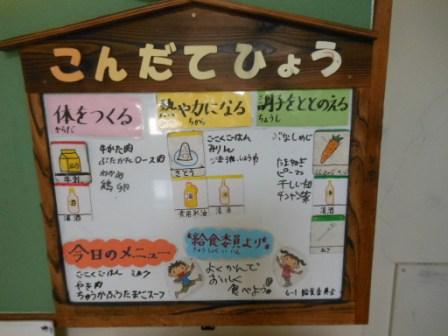 こんだてひょう
体をつくる
からだ
牛かた肉
ぶたかたロース肉
わかめ
鶏卵
牛乳
清酒
熱や力になる
ちから
ごこくごはん
みりん
さとう
食用米油
清酒
調子をととのえる
ちょうし
ぶなしめじ
たまねぎ
ピーマン
チンゲン菜
今日のメニュー
ごこくごはん ミルク
やき肉
ちゅうかふうたまごスープ
給食委員より
よくかんで
おいしく
食べよう